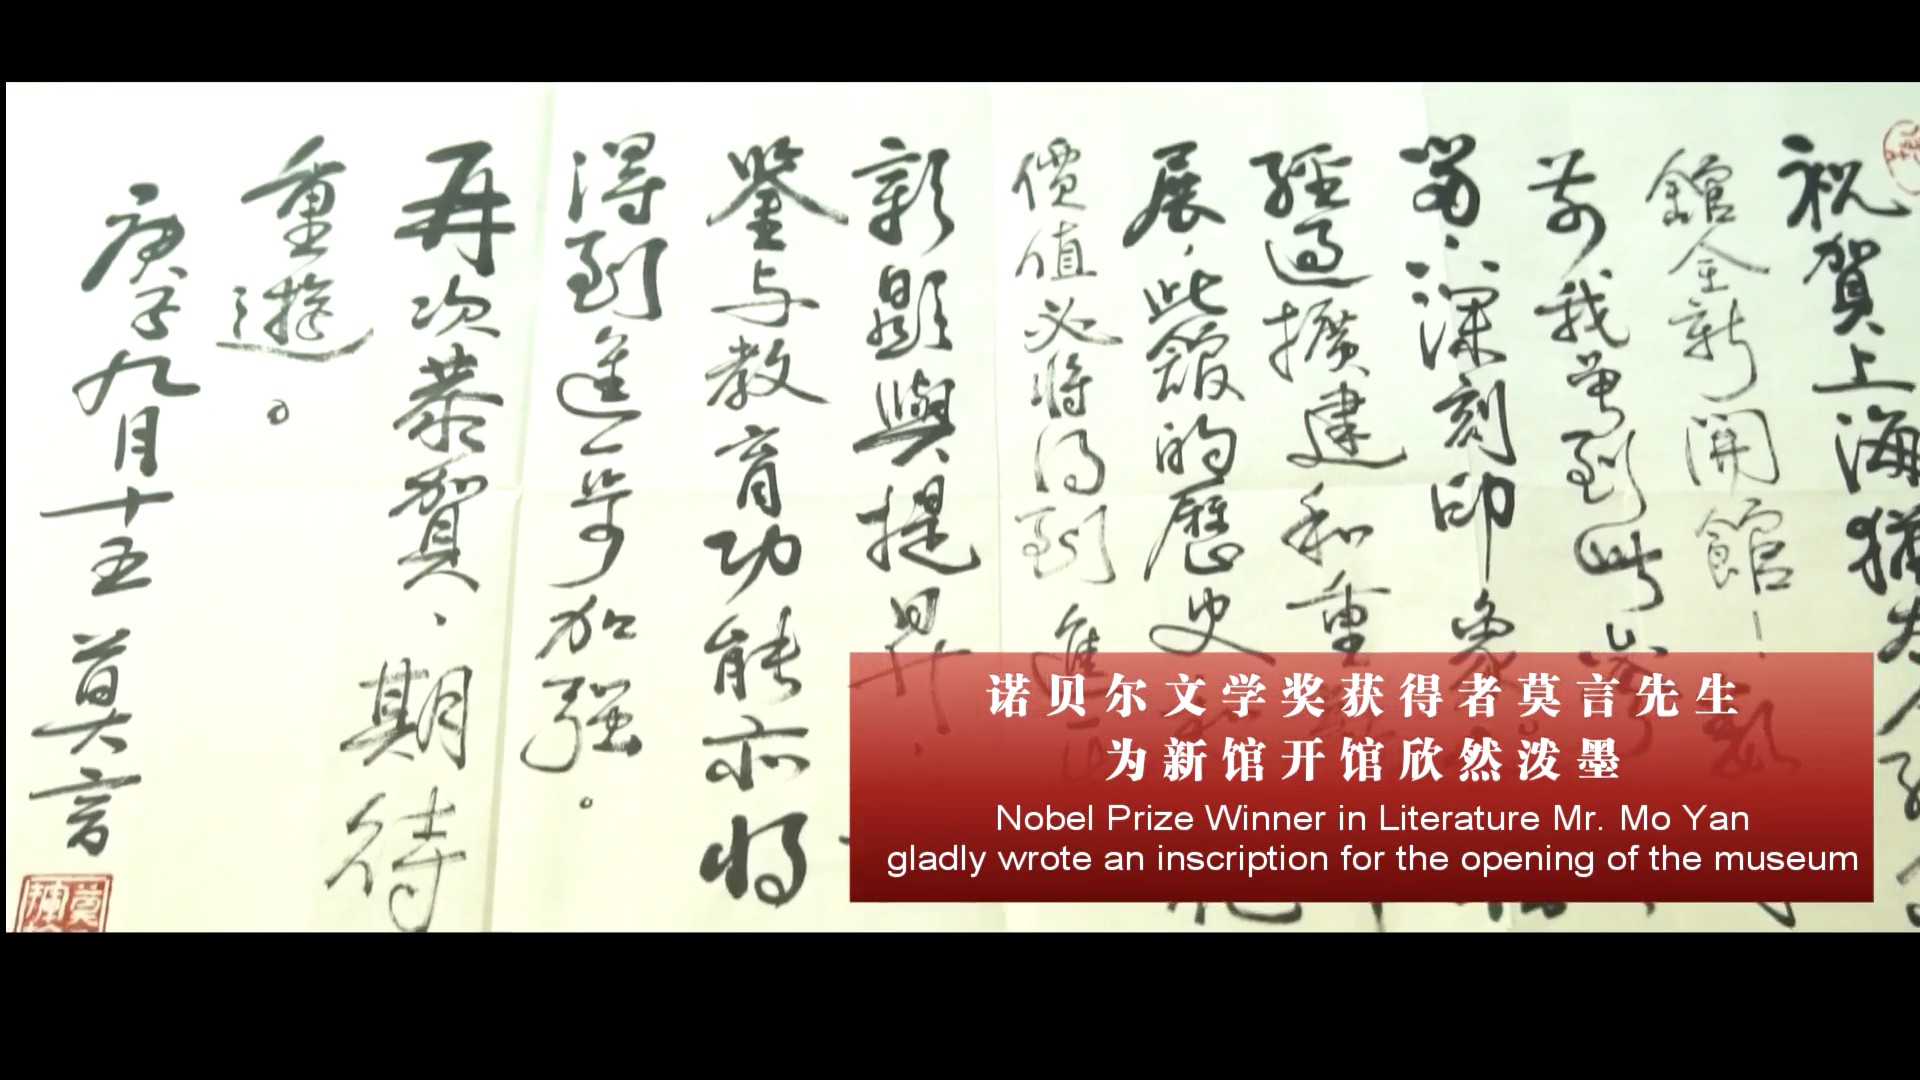 祝賀上海猶太
館全新開館
前我曾到此參
深刻印象
經過擴建和重
展，此館的歷史
價值必將得到進一
新顯與提昇，
鑒与教育功能亦將
得到進一步加强。
再次恭賀、期待
重遊。
庚子九月十五 莫言
诺贝尔文学奖获得者莫言先生
为新馆开馆欣然泼墨
Nobel Prize Winner in Literature Mr. Mo Yan
gladly wrote an inscription for the opening of the museum